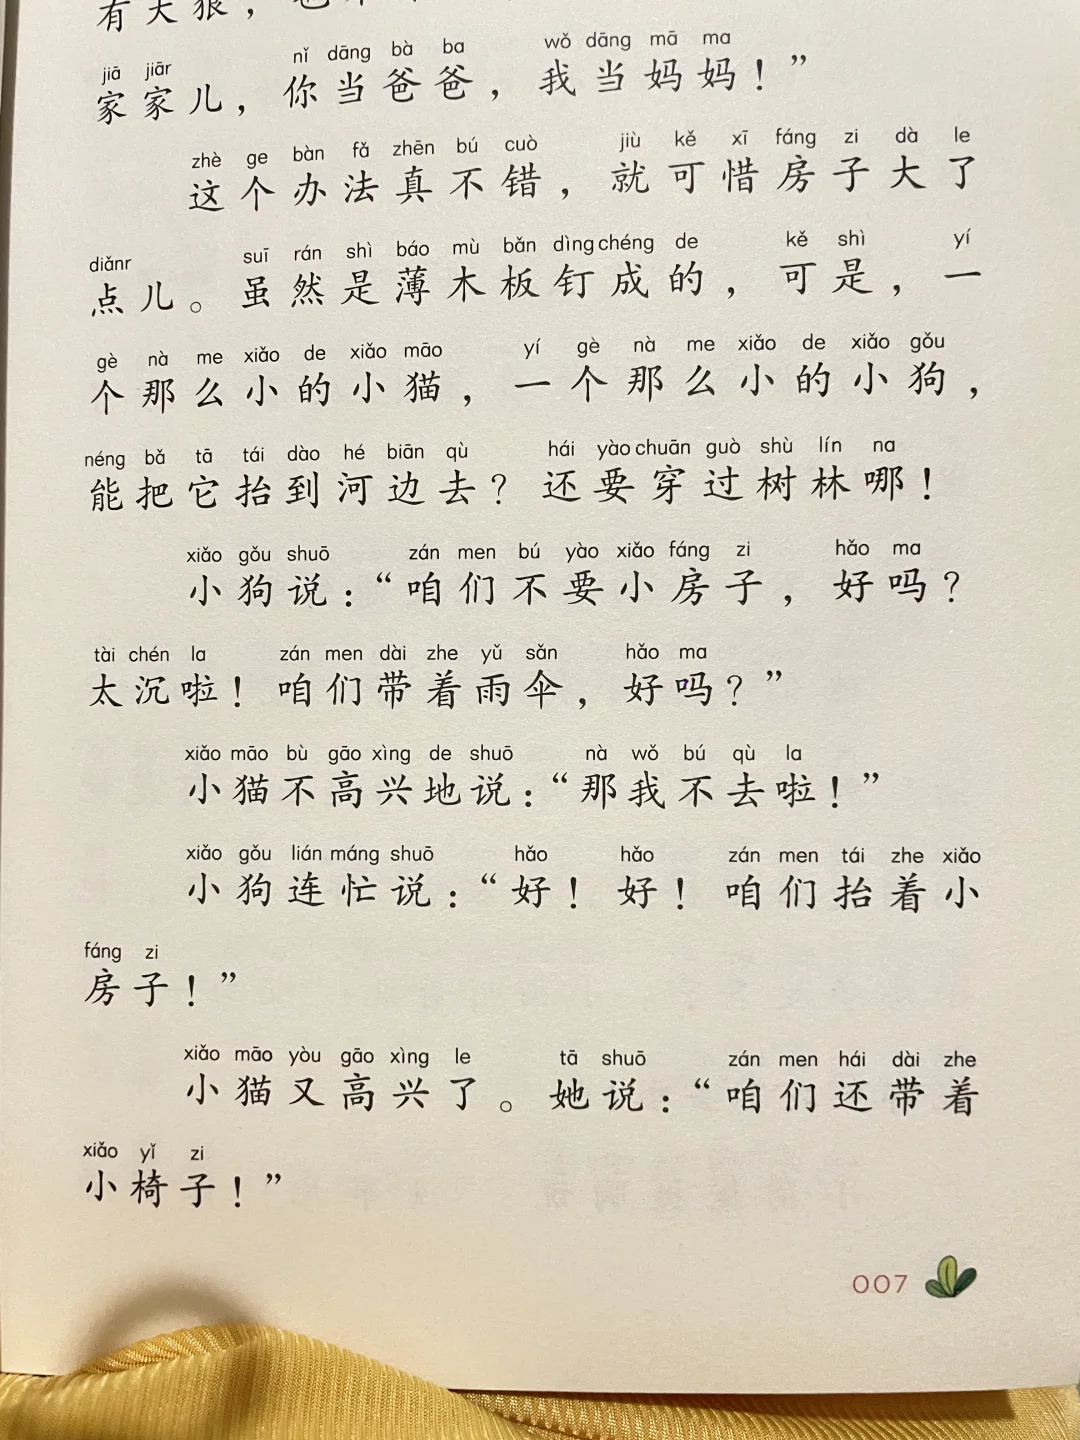 有大狼，也
jiā jiār nǐ dāng bà ba wǒ dāng mā ma
家家儿，你当爸爸，我当妈妈！”
zhè ge bàn fǎ zhēn bú cuò jiù kě xī fáng zi dà le
这个办法真不错，就可惜房子大了
diǎnr suī rán shì báo mù bǎn dìng chéng de kě shì yí
点儿。虽然是薄木板钉成的，可是，一
gè nà me xiǎo de xiǎo māo yí gè nà me xiǎo de xiǎo gǒu
个那么小的小猫，一个那么小的小狗，
néng bǎ tā tái dào hé biān qù hái yào chuān guò shù lín na
能把它抬到河边去？还要穿过树林哪！
xiǎo gǒu shuō zán men bú yào xiǎo fáng zi hǎo ma
小狗说：“咱们不要小房子，好吗？
tài chén la zán men dài zhe yǔ sǎn hǎo ma
太沉啦！咱们带着雨伞，好吗？”
xiǎo māo bù gāo xìng de shuō nà wǒ bú qù la
小猫不高兴地说：“那我不去啦！”
xiǎo gǒu lián máng shuō hǎo hǎo zán men tái zhe xiǎo
小狗连忙说：“好！好！咱们抬着小
fáng zi
房子！”
xiǎo māo yòu gāo xìng le tā shuō zán men hái dài zhe
小猫又高兴了。她说：“咱们还带着
xiǎo yǐ zi
小椅子！”
007